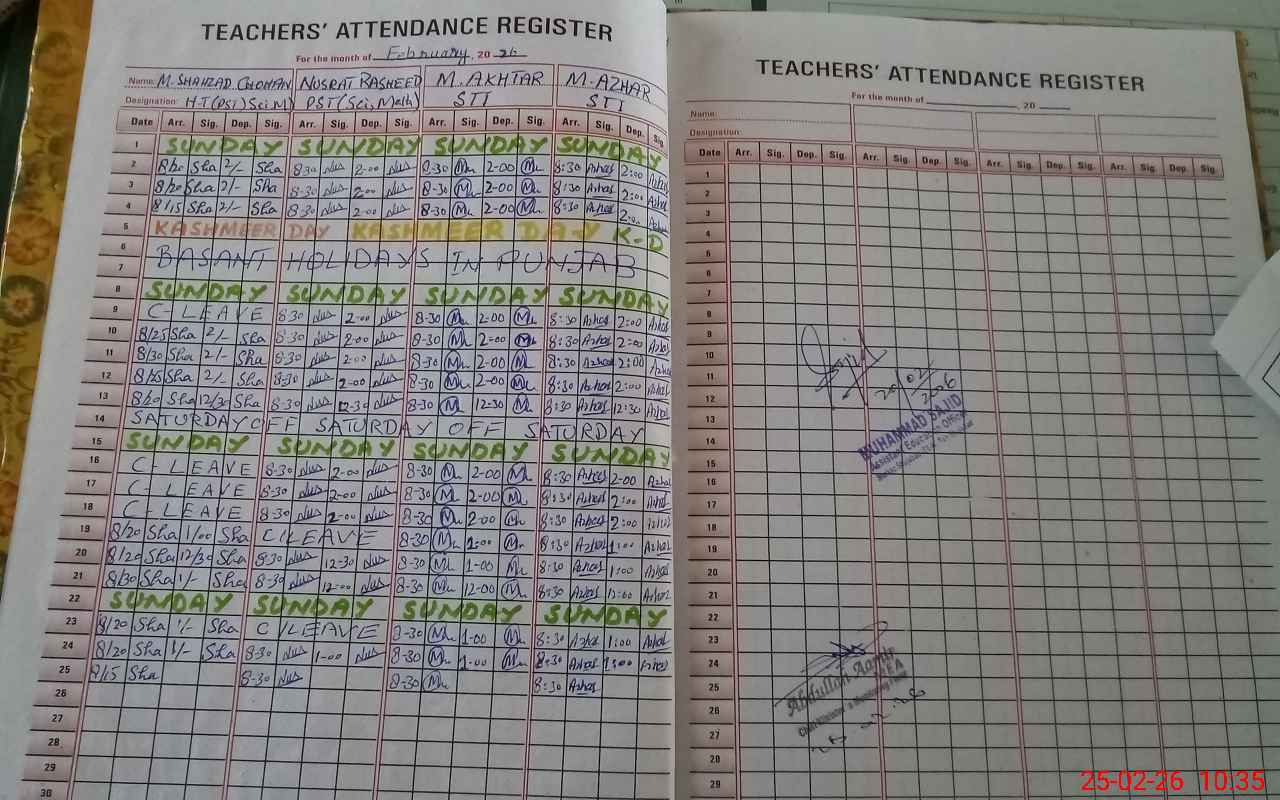 TEACHERS' ATTENDANCE REGISTER
For the month of February, 20 26
Name: M. SHAHZAD CHOHAN NUSRAT RASHEED M. AKHTAR M. AZHAR
Designation: H.T(PST) Sci.M) PST(Sci, Math) STI STI
Date Arr. Sig. Dep. Sig. Arr. Sig. Dep. Sig. Arr. Sig. Dep. Sig. Arr. Sig. Dep. Sig.
1 SUNDAY SUNDAY SUNDAY SUNDAY
2 8/20 Sha 2/- Sha 8-30 Nus 2-00 Nus 8-30 M 2-00 M 8:30 Azhar 2:00 Azhar
3 8/20 Sha 2/- Sha 8-30 Nus 2-00 Nus 8-30 M 2-00 M 8:30 Azhar 2:00 Azhar
4 8/15 Sha 2/- Sha 8-30 Nus 2-00 Nus 8-30 M 2-00 M 8:30 Azhar 2:00 Azhar
5 KASHMEER DAY KASHMEER DAY K-D
6 BASANT HOLIDAYS IN PUNJAB
7
8 SUNDAY SUNDAY SUNDAY SUNDAY
9 C-LEAVE 8-30 Nus 2-00 Nus 8-30 M 2-00 M 8:30 Azhar 2:00 Azhar
10 8/25 Sha 2/- Sha 8-30 Nus 2-00 Nus 8-30 M 2-00 M 8:30 Azhar 2:00 Azhar
11 8/30 Sha 2/- Sha 8-30 Nus 2-00 Nus 8-30 M 2-00 M 8:30 Azhar 2:00 Azhar
12 8/25 Sha 2/- Sha 8-30 Nus 2-00 Nus 8-30 M 2-00 M 8:30 Azhar 2:00 Azhar
13 8/20 Sha 12/30 Sha 8-30 Nus 12-30 Nus 8-30 M 12-30 M 8:30 Azhar 12:30 Azhar
14 SATURDAY OFF SATURDAY OFF SATURDAY
15 SUNDAY SUNDAY SUNDAY SUNDAY
16 C-LEAVE 8-30 Nus 2-00 Nus 8-30 M 2-00 M 8:30 Azhar 2-00 Azhar
17 C-LEAVE 8-30 Nus 2-00 Nus 8-30 M 2-00 M 8:30 Azhar 2:00 Azhar
18 C-LEAVE 8-30 Nus 2-00 Nus 8-30 M 2-00 M 8:30 Azhar 2:00 Azhar
19 8/20 Sha 1/00 Sha C/LEAVE 8-30 M 1:00 M 8:30 Azhar 1:00 Azhar
20 8/20 Sha 12/30 Sha 8-30 Nus 12-30 Nus 8-30 M 1-00 M 8:30 Azhar 1:00 Azhar
21 8/30 Sha 1/- Sha 8-30 Nus 12-00 Nus 8-30 M 12-00 M 8:30 Azhar 12:00 Azhar
22 SUNDAY SUNDAY SUNDAY SUNDAY
23 8/20 Sha 1/- Sha C/LEAVE 8-30 M 1-00 M 8:30 Azhar 1:00 Azhar
24 8/20 Sha 1/- Sha 8-30 Nus 1-00 Nus 8-30 M 1-00 M 8:30 Azhar 1:00 Azhar
25 8/15 Sha 8-30 Nus 8-30 M 8:30 Azhar
26
27
28
29
30
TEACHERS' ATTENDANCE REGISTER
For the month of , 20
Name:
Designation:
Date Arr. Sig. Dep. Sig. Arr. Sig. Dep. Sig. Arr. Sig. Dep. Sig. Arr. Sig. Dep. Sig.
1
2
3
4
5
6
7
8
9
10
11
12
13
14
15
16
17
18
19
20
21
22
23
24
25
26
27
28
29
20/02/2026
MUHAMMAD SAJID
Assistant Education Officer
Abdullah Aamir
M.E.A
25-02-26 10:35